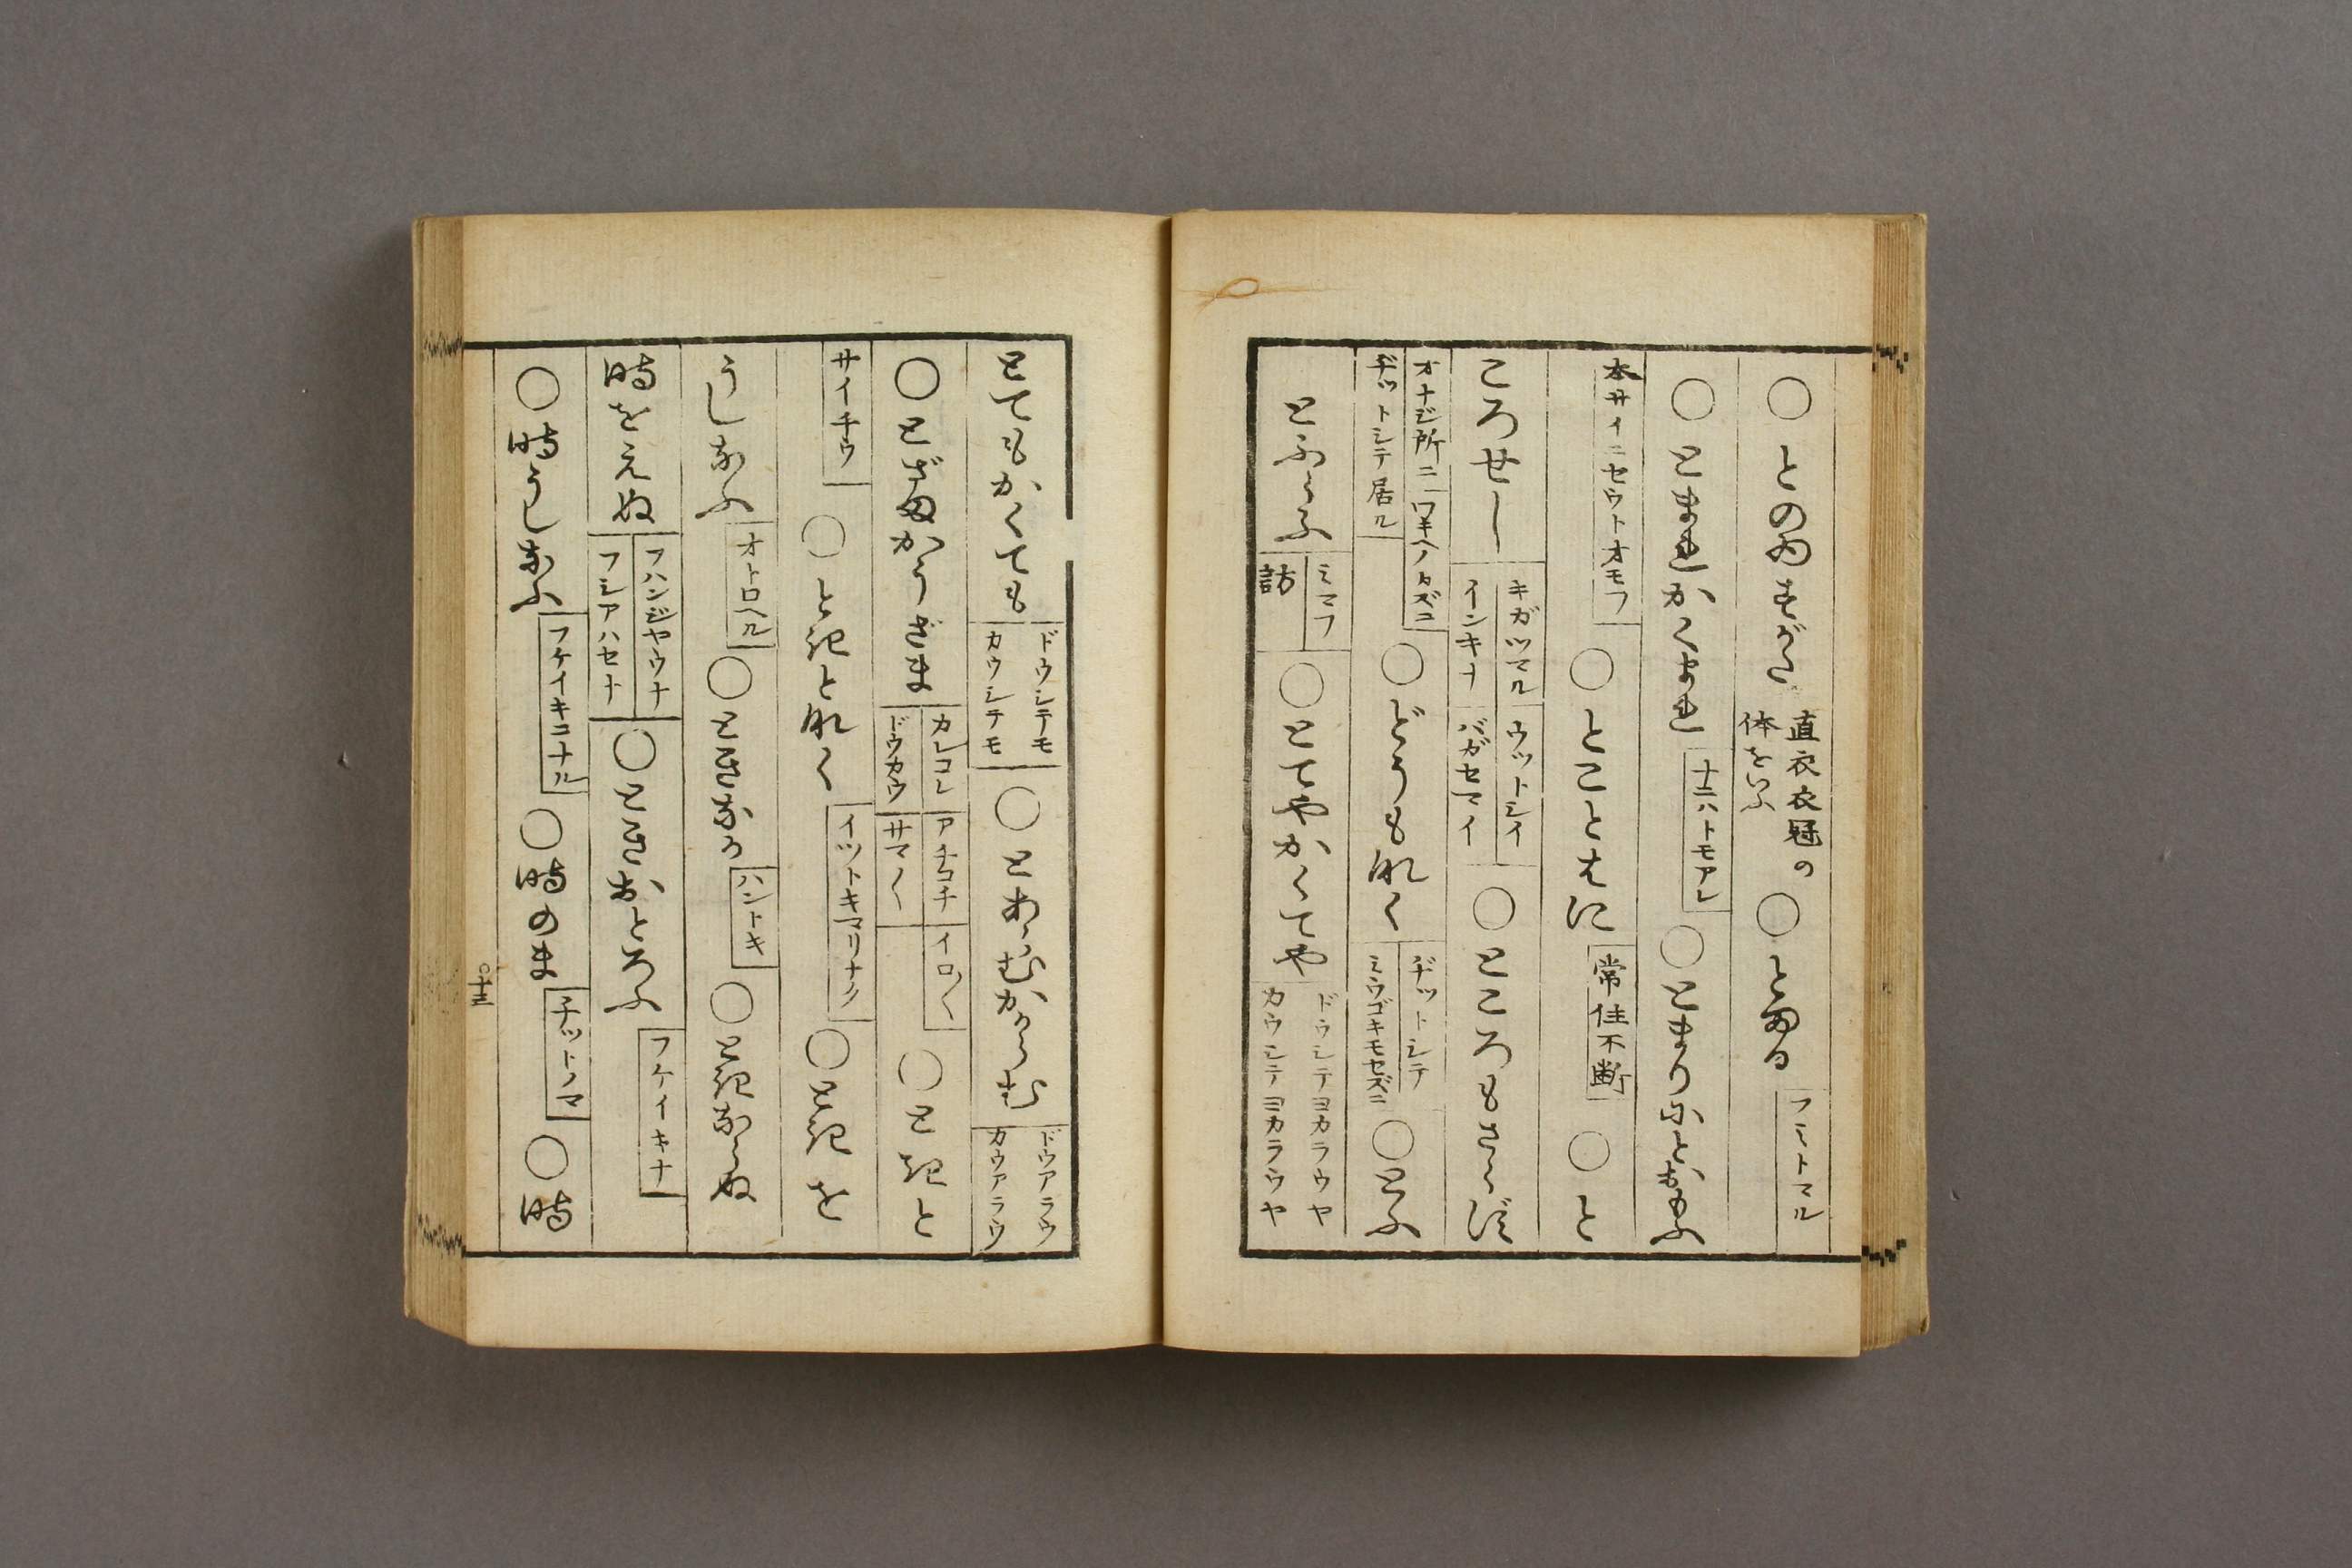 ○とのゐすがた 直衣衣冠の体をいふ ○とゐる フシトマル
○とまれかくまれ ナニハトモアレ ○とまりにとおもふ
本サイニセウトオモフ ○とことはに 常住不断 ○と
ころせし キガツマル インキナ ウットシイ バガセマイ ○ところもさらず
オナジ所ニワキヘノカズニ ヂットシテ居ル ○どうも那く ヂットシテ ミウゴキモセズニ ○とふ
とふらふ ミマフ 訪 ○とてやかくてや ドウシテヨカラウヤ カウシテヨカラウヤ
とてもかくても ドウシテモ カウシテモ ○とあらむかゝらむ ドウアラウ カウアラウ
○とざまかうざま カレコレ ドウカウ アチコチ サマ〳〵 イロ〳〵 ○とき と
サイチウ ○ときとなく イツトキマリナク ○ときを
うしなふ オトロヘル ○ときなか ハントキ ○ときならぬ
時をえぬ フハンジヤウナ フシアハセナ ○ときおとろふ フケイキナ
○時うしなふ フケイキニナル ○時のま チットノマ ○時
○十三